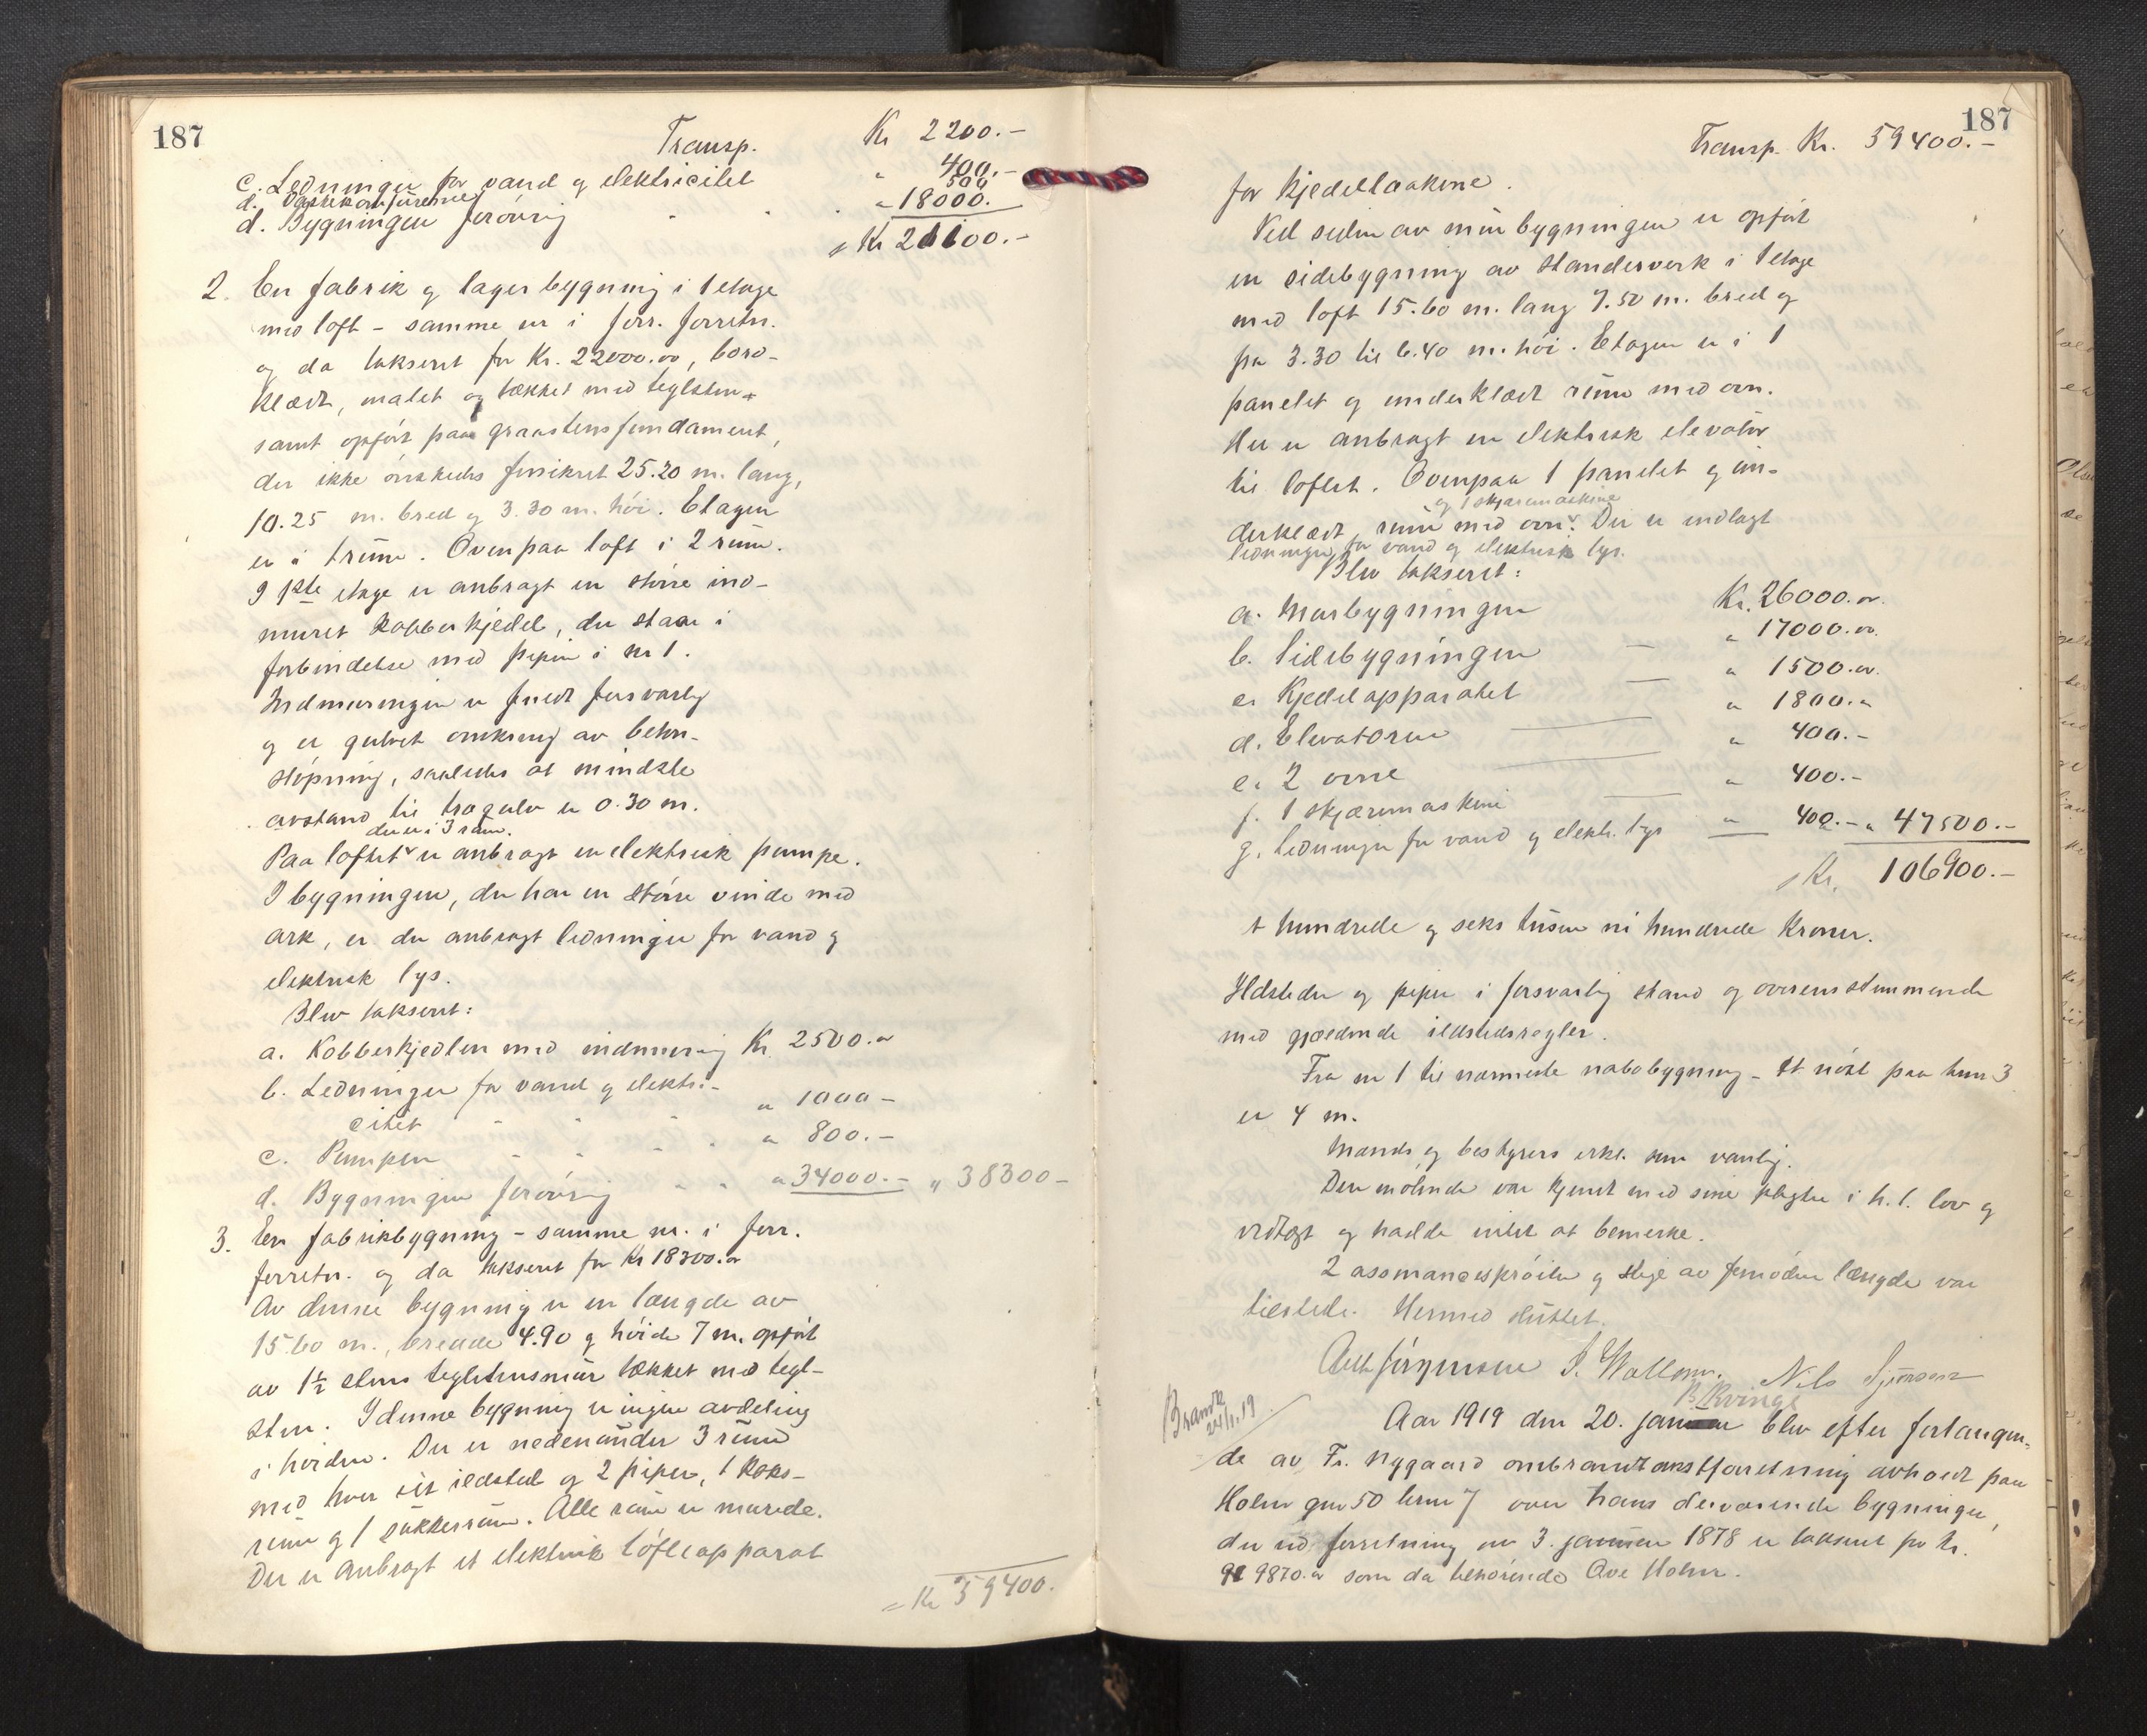 187
Transp. Kr 2200.-
c. Ledninger for vand og elektricitet " 400.-
d. Vaskekomfurerne 500
d. Bygningen forøvrig " 18000.
Kr 21100.-
2. En fabrik og lagerbygning i 1 etage
med loft - samme nr i forr. forretn.
og da takseret for Kr. 22000.00, bord-
klædt, malet og tækket med teglsten
samt opført paa graastensfundament,
der ikke ønskedes forsikret 25.20 m. lang,
10.25 m. bred og 3.30 m. høi. Etagen
er i 1 rum. Ovenpaa loft i 2 rum.
I 1ste etage er anbragt en større ind-
muret kobberkjedel, der staar i
forbindelse med pipen i nr 1.
Indmuringen er fundt forsvarlig
og er gulvet omkring av beton-
støpning, saaledes at mindste
avstand til trægulv er 0.30 m.
der er i 3 rum.
Paa loftet er anbragt en elektrisk pumpe.
I bygningen, der har en større vinde med
ark, er der anbragt ledninger for vand og
elektrisk lys.
Blev takseret:
a. Kobberkjedlen med indmuring Kr 2500.00
b. Ledninger for vand og elektri-
citet " 1000 -
c. Pumpen " 800.-
d. Bygningen forøvrig " 34000.- " 38300 -
3. En fabrikbygning - samme nr. i forr.
forretn. og da takseret for Kr 18300.00
Av denne bygning er en længde av
15.60 m., bredde 4.90 og høide 7 m. opført
av 1½ stens teglstensmur tækket med tegl-
sten. I denne bygning er ingen avdeling
i høiden. Der er nedenunder 3 rum
med hver sit ildsted og 2 piper, 1 koks-
rum og 1 sukkerrum. Alle rum er murede.
Der er anbragt et elektrisk løfteapparat
= Kr 59400.
187
Transp. Kr. 59400.-
for kjedellaakene.
Ved siden av murbygningen er opført
en sidebygning av standerverk i 1 etage
med loft 15.60 m. lang 7.50 m. bred og
fra 3.30 til 6.40 m. høi. Etagen er i 1
panelet og underklædt rum med ovn.
Her er anbragt en elektrisk elevator
til loftet. Ovenpaa 1 panelet og un-
og 1 skjæremaskine
derklædt rum med ovn. Der er indlagt
ledninger for vand og elektrisk lys.
Blev takseret:
a. Murbygningen Kr. 26000.00
b. Sidebygningen " 17000.00
c. Kjedelapparatet " 1500.00
d. Elevatoren " 1800.00
e. 2 ovne " 400.-
f. 1 skjæremaskine " 400.-
g. Ledninger for vand og elektr. lys " 400.- " 47500.-
Kr. 106900.-
et hundrede og seks tusen ni hundrede Kroner.
Ildsteder og piper i forsvarlig stand og overensstemmende
med gjældende ildstedsregler.
Fra nr 1 til nærmeste nabobygning - et nøst paa brnr 3
er 4 m.
Mands og bestyrers erkl. som vanlig.
Den møtende var kjendt med sine pligter i h. t. lov og
vedtægt og hadde intet at bemerke.
2 assurancesprøiter og stige av fornøden længde var
tilstede. Hermed sluttet.
Nils
B. Kvinge
Brandk. 24/1.19
Aar 1919 den 20. januar blev efter forlangen-
de av Fr. Nygaard ombrandtakstforretning avholdt paa
Holm gnr 50 brnr 7 over hans derværende bygninger,
der ved forretning av 3. januar 1878 er takseret for kr.
9870.00 som da tilhørende Ove Holm.